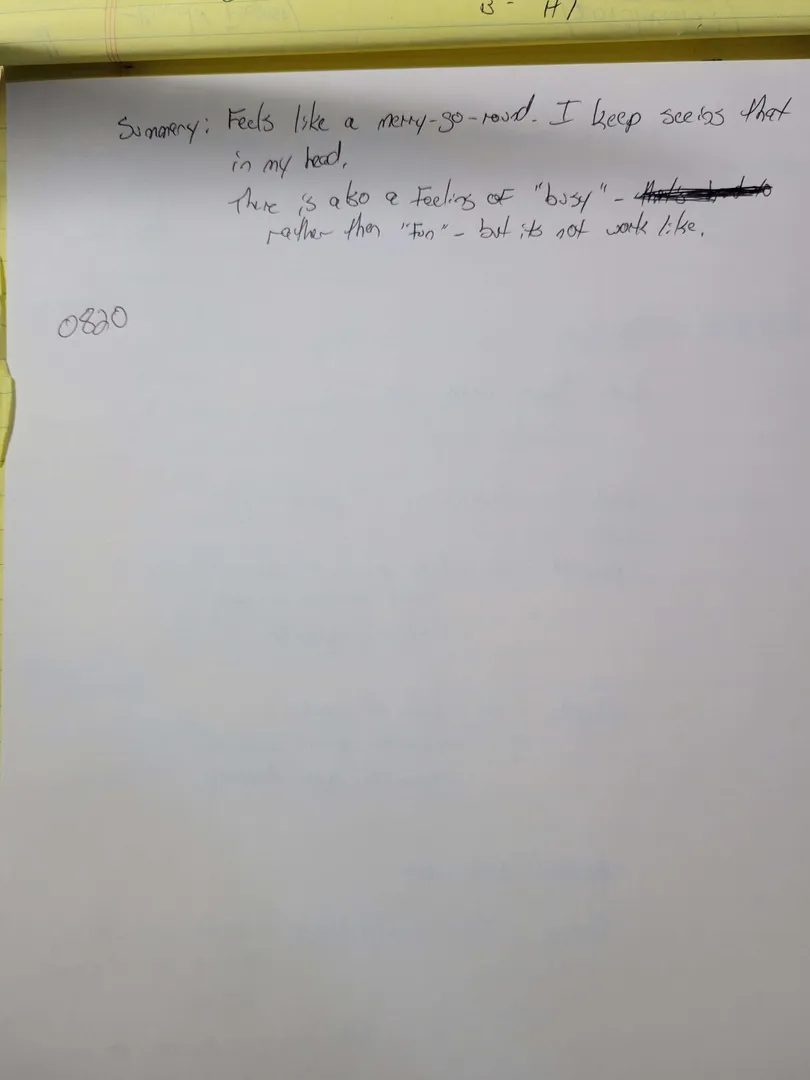 B- H/
Summary: Feels like a merry-go-round. I keep seeing that
in my head.
There is also a feeling of "busy" -
rather then "Fun" - but its not work like.
0820